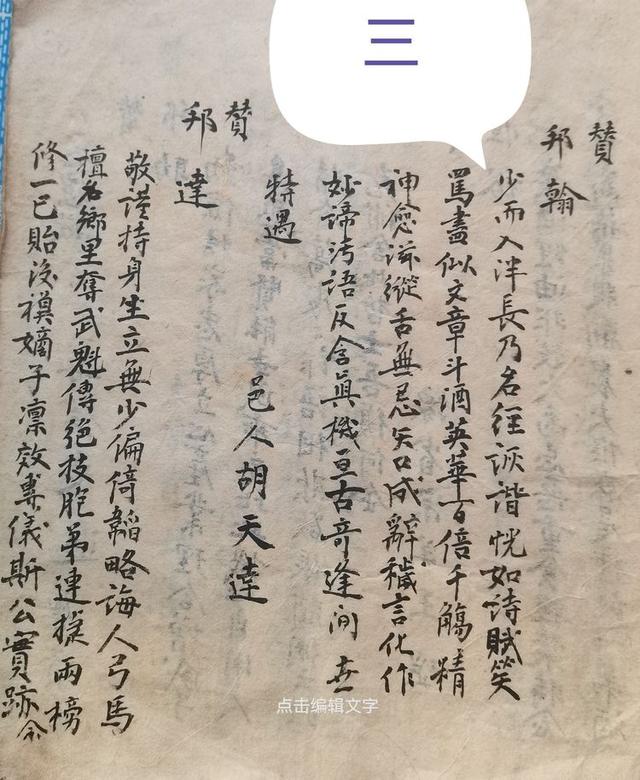 三
贊
邦翰
少而入泮長乃名經詼諧恍如詩賦笑
罵盡似文章斗酒英華百倍千觴精
神愈滋縱舌無忌矢口成辭穢言化作
妙諦語反含眞機亘古奇逢间世
特遇
邑人胡天達
贊
邦達
敬謹持身生立無少偏倚韜略誨人弓馬
檀名鄉里奪武魁傳絕技胞弟連捷兩榜
修一已貽後模嫡子凛效儀斯公實跡令
点击编辑文字